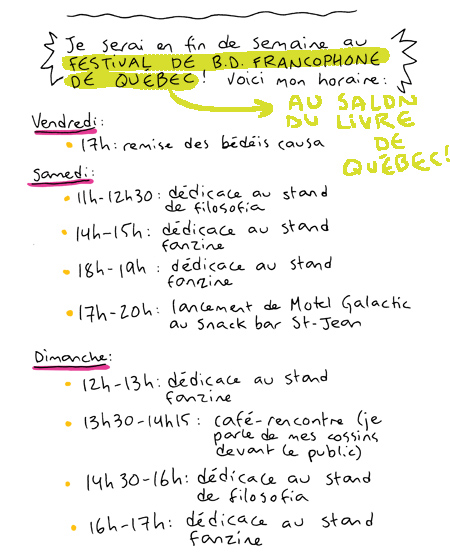 Je serai en fin de semaine au
FESTIVAL DE B.D. FRANCOPHONE
DE QUÉBEC! Voici mon horaire:
AU SALON
DU LIVRE
DE
QUÉBEC!
Vendredi:
• 17h: remise des bédéis causa
Samedi:
• 11h-12h30: dédicace au stand
de filosofia
• 14h-15h: dédicace au stand
fanzine
• 18h-19h: dédicace au stand
fanzine
• 17h-20h: lancement de Motel Galactic
au Snack bar St-Jean
Dimanche:
• 12h-13h: dédicace au stand
fanzine
• 13h30-14h15: café-rencontre (je
parle de mes cossins
devant le public)
• 14h30-16h: dédicace au stand
de filosofia
• 16h-17h: dédicace au stand
fanzine